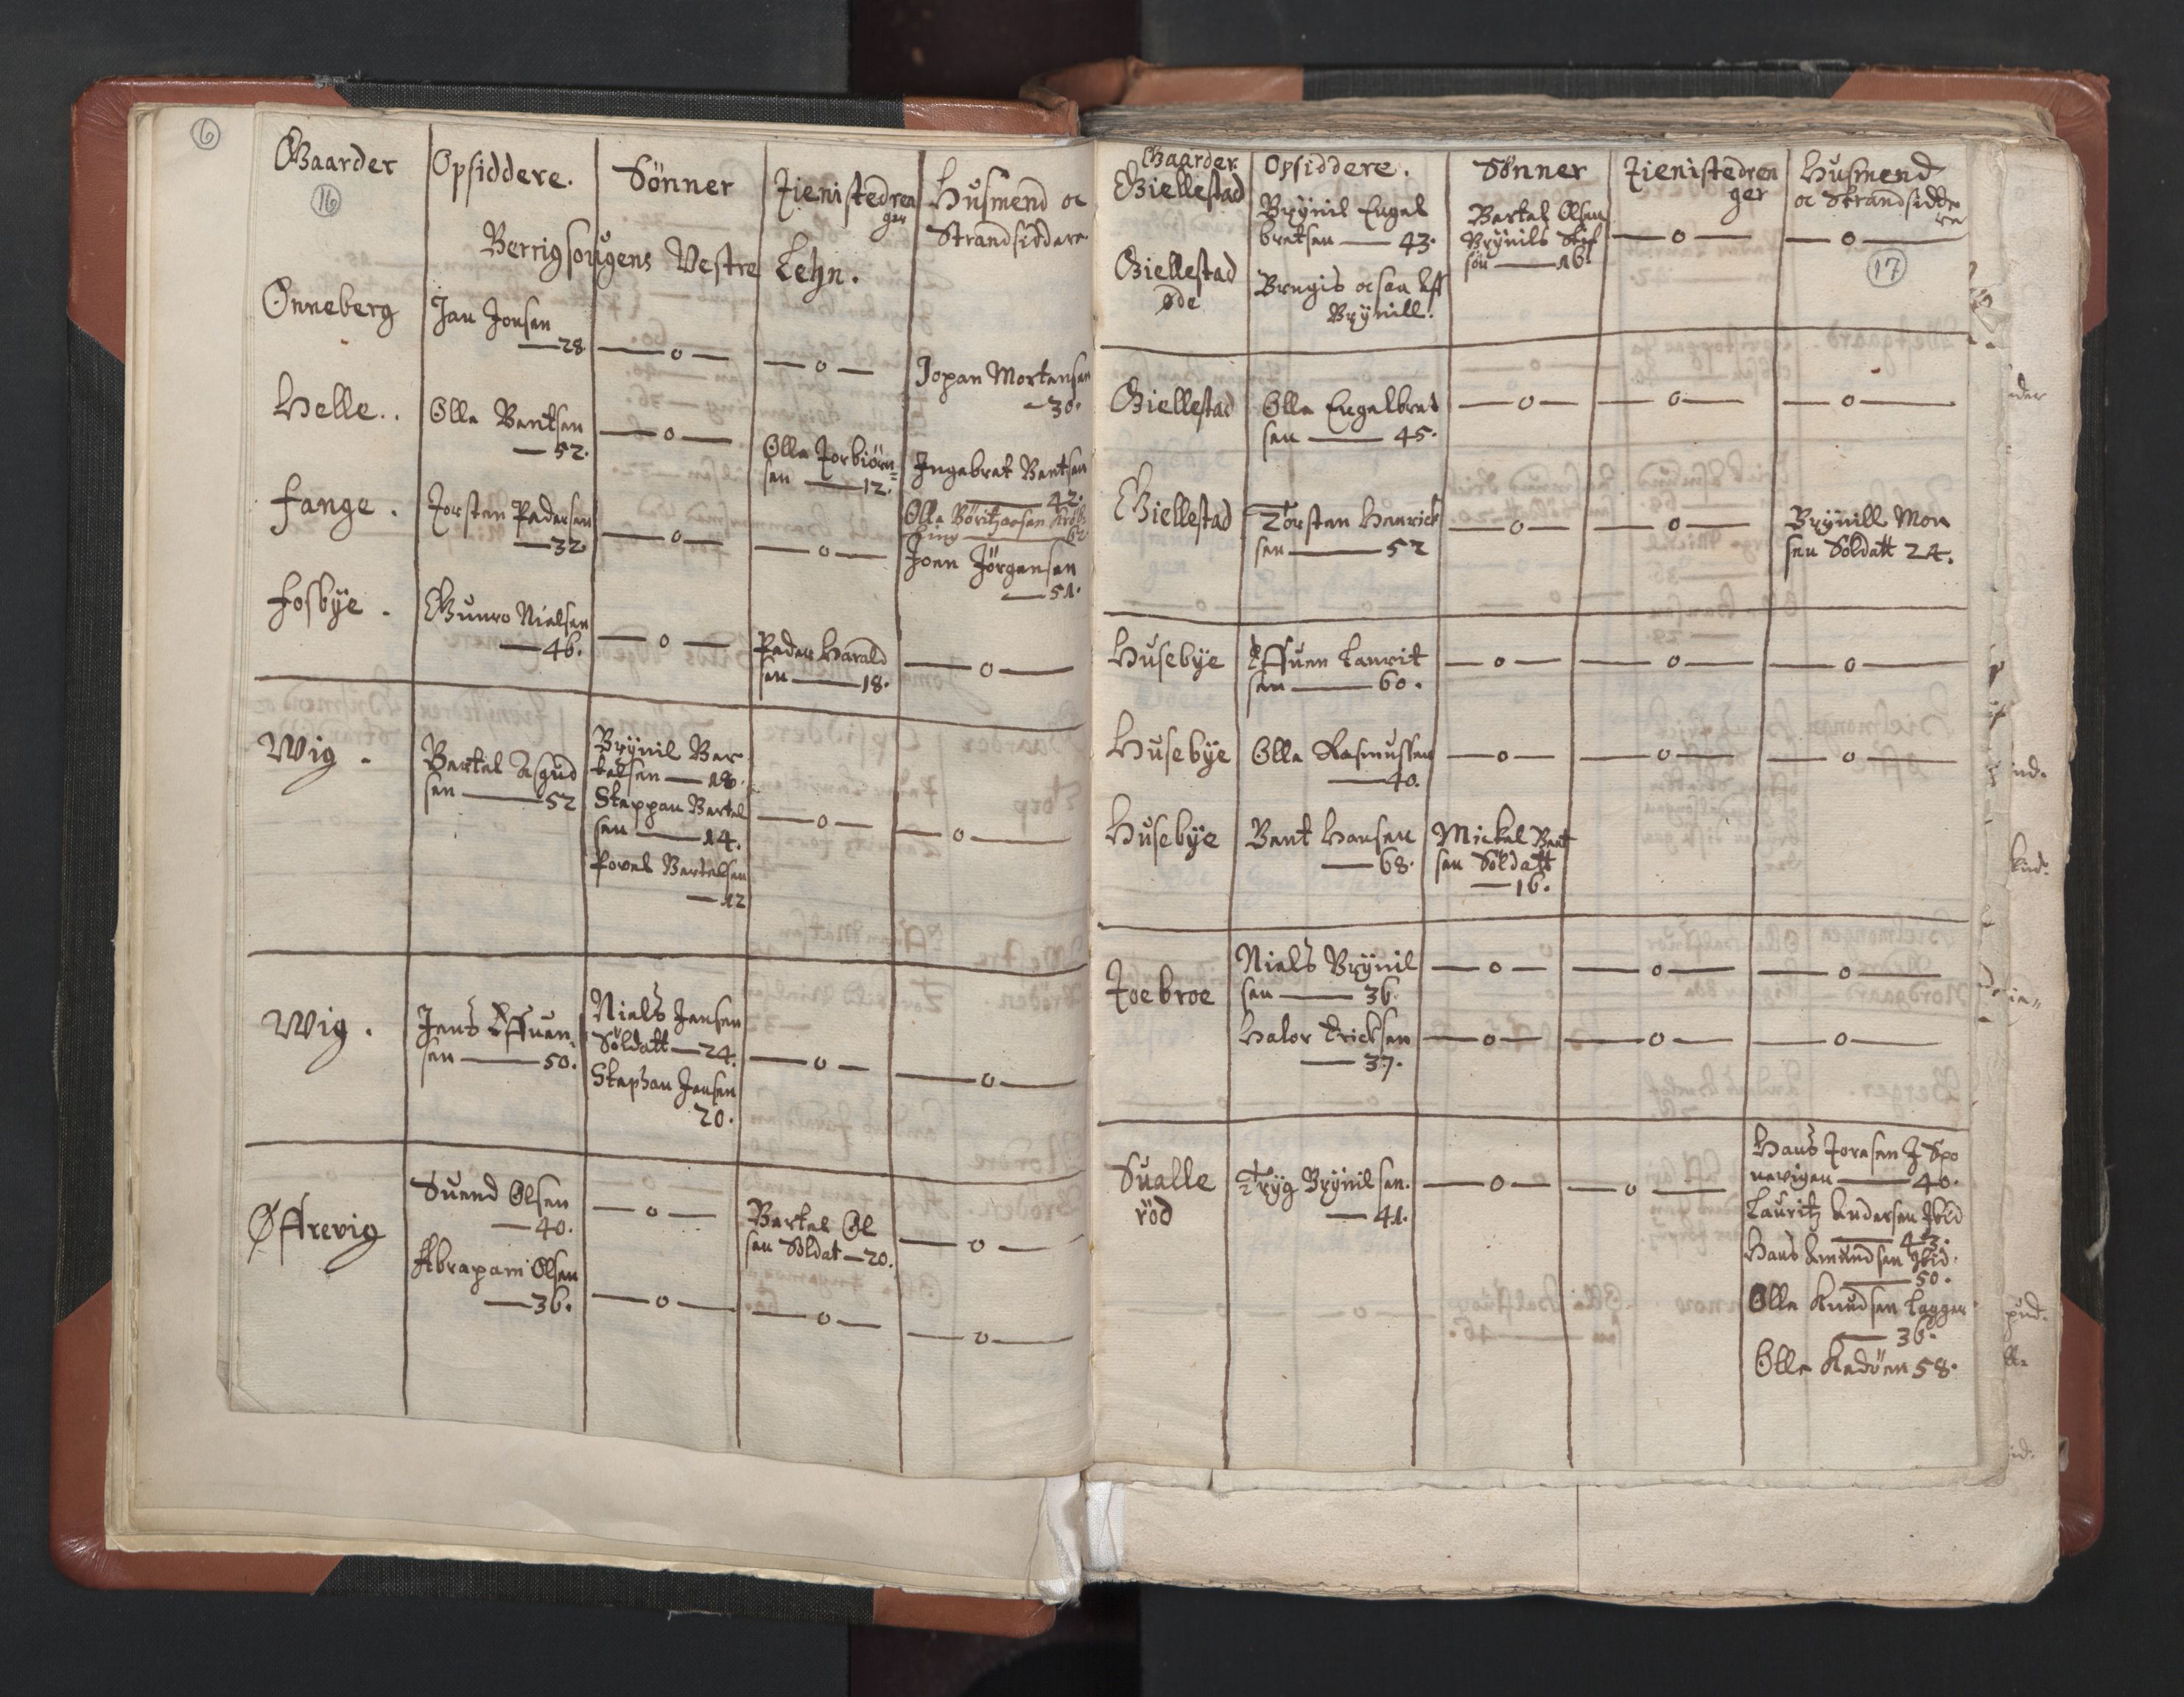 6
Gaarder
16
Opsiddere.
Sönner
Tienistedren
ger
Husmend oc
Strandsiddere
Berrigsougens Vestre Lehn.
Onneberg
Jan Jonsen
— 28.
— o —
— o —
Jopan Mortensen
— 30.
Helle..
Olle Bentsen
— 52.
— o —
Olle Torbiörn=
sen — 12.
Ingebret Bentsen
— 42.
Fange.
Torsten Pedersen
— 32.
— o —
— o —
Olle
62
Joen Jörgensen
— 51.
Fosbÿe.
Gunro Nielsen
— 46.
— o —
Peder Harald
sen — 18.
— o —
Wig.
Bertel Asgud
sen — 52
Brÿnil Ber
telsen — 18.
Steppan Bertel
sen — 14.
Povel Bertelsen
— 12
— o —
— o —
Wig.
Jens Effuen=
sen — 50.
Niels Jensen
Soldatt — 24.
Stephan Jensen
20.
— o —
— o —
Øffrevig
Suend Olsen
— 40.
— o —
Bertel Ol
sen Soldat — 20.
— o —
Abrapam Olsen
— 36.
— o —
— o —
— o —
Gaarder.
Opsiddere.
Sönner
Tienistedren
ger
Husmend
oc Strandsidde
re
17
Giellestad
Brÿnil Engel
bretsen — 43.
Bertel Olsen
Brÿnils Stif
sön — 16.
— o —
— o —
Giellestad
øde
Brugis ocsaa aff
Brÿnill.
Giellestad
Olle Engelbret
sen — 45.
— o —
— o —
— o —
Giellestad
Torsten Henrick
sen — 52
— o —
— o —
Brÿnill Mon
sen Soldatt 24.
Husebÿe
Effuen Laurit
sen — 60.
— o —
— o —
— o —
Husebÿe
Olle Rasmussen
— 40.
— o —
— o —
— o —
Husebÿe
Bent Hansen
— 68.
Mickel Bent
sen Soldatt
— 16.
Toebroe
Niels Brÿnil
sen — 36.
— o —
— o —
— o —
Halor Ericksen
— 37.
— o —
— o —
— o —
Sualle
röd
Trÿg Brÿnilsen.
— 41.
— o —
— o —
Hans Toresen J Spo
nevigen — 40.
Lauritz Andersen Ibid
— 43.
Hans Amundsen Ibid.
— 50.
Olle Knudsen Lagger
— 36.
Olle Kadöen 58.